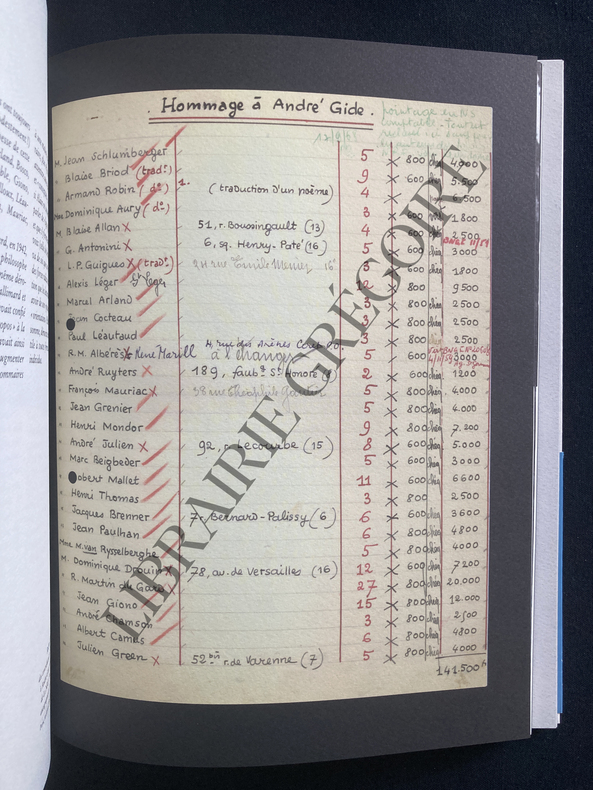 Hommage à André Gide.
M. Jean Schlumberger 5 × 800 4000
" Blaise Briod (trad:) 9 × 600 5.500
" Armand Robin (do) 1. (traduction d'un poème) 4 × 800 2.500
Mme Dominique Aury (do) 3 × 600 1.800
M. Blaise Allan × 51, r. Boussingault (13) 4 × 600 2.500
" G. Antonini × 6, sq. Henry-Paté (16) 5 × 600 3000
" L.P. Guigues × (trad:) 24 rue Emile Menier 16e 3 × 600 1800
" Alexis Léger St Leger 12 × 800 9500
" Marcel Arland 3 × 800 2500
Jean Cocteau 3 × 800 2500
Paul Léautaud 3 × 800 2500
" R.M. Albérès × René Marill 4, rue des Arènes à l'échange 5 600 3000
" André Ruyters × 189, faubg St Honoré 2 × 600 1200
" François Mauriac × 38 rue Théophile Gautier 5 × 800 4.000
" Jean Grenier 5 × 800 4.000
" Henri Mondor 9 × 800 7.200
" André Julien × 92, r. Lecourbe (15) 8 × 600 5.000
" Marc Beigbeder 5 × 600 3000
Robert Mallet 11 × 600 6600
" Henri Thomas 3 × 800 2500
" Jacques Brenner 7 r. Bernard-Palissy (6) 6 × 600 3600
" Jean Paulhan 6 × 800 4800
Mme M. van Rysselberghe 5 × 800 4000
M. Dominique Drouin × 78, av. de Versailles (16) 12 × 600 7200
" R. Martin du Gard 27 × 800 20.000
" Jean Giono 15 × 800 12.000
" André Chamson 3 × 800 2500
" Albert Camus 6 × 800 4800
" Julien Green × 52 bis r. de Varenne (7) 5 × 800 4000
141.500
LIBRAIRIE GRÉGOIRE